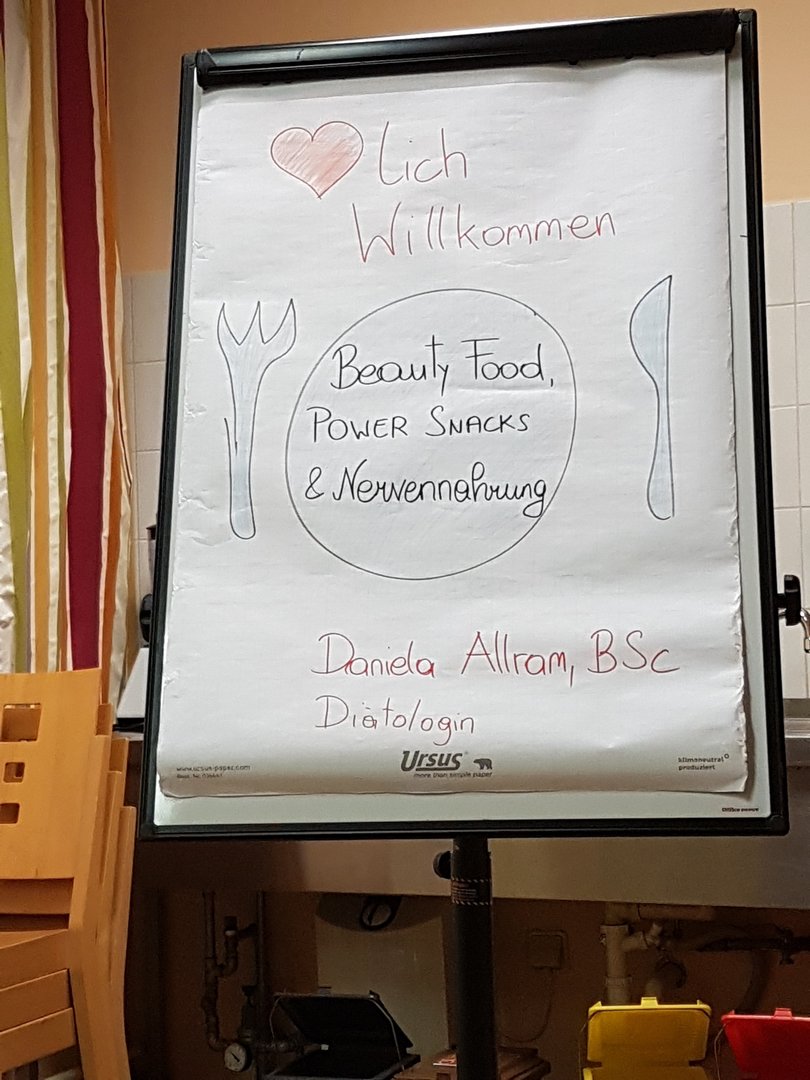 lich
Willkommen
Beauty Food,
POWER SNACKS
& Nervennahrung
Daniela Allram, BSc
Diätologin
www.ursus-paper.com
Ursus
more than simple paper
klimaneutral
produziert